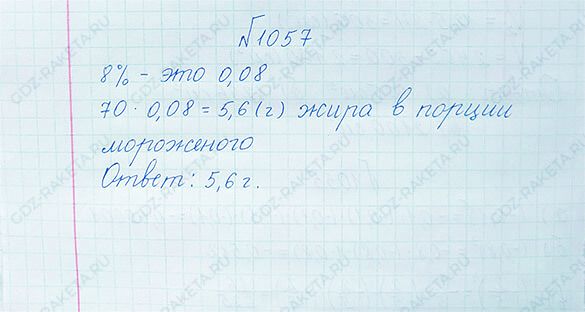 №1057
8% - это 0,08
70 · 0,08 = 5,6 (г) жира в порции
мороженого
Ответ: 5,6 г.
GDZ-RAKETA.RU